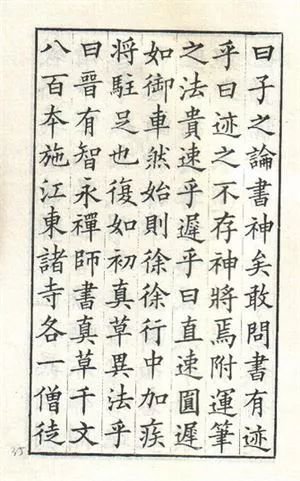 曰子之論書神矣敢問書有迹
乎曰迹之不存神將焉附運筆
之法貴速乎遲乎曰直速圓遲
如御車然始則徐徐行中加疾
将駐足也復如初真草異法乎
曰晉有智永禪師書真草千文
八百本施江東諸寺各一僧徒
35